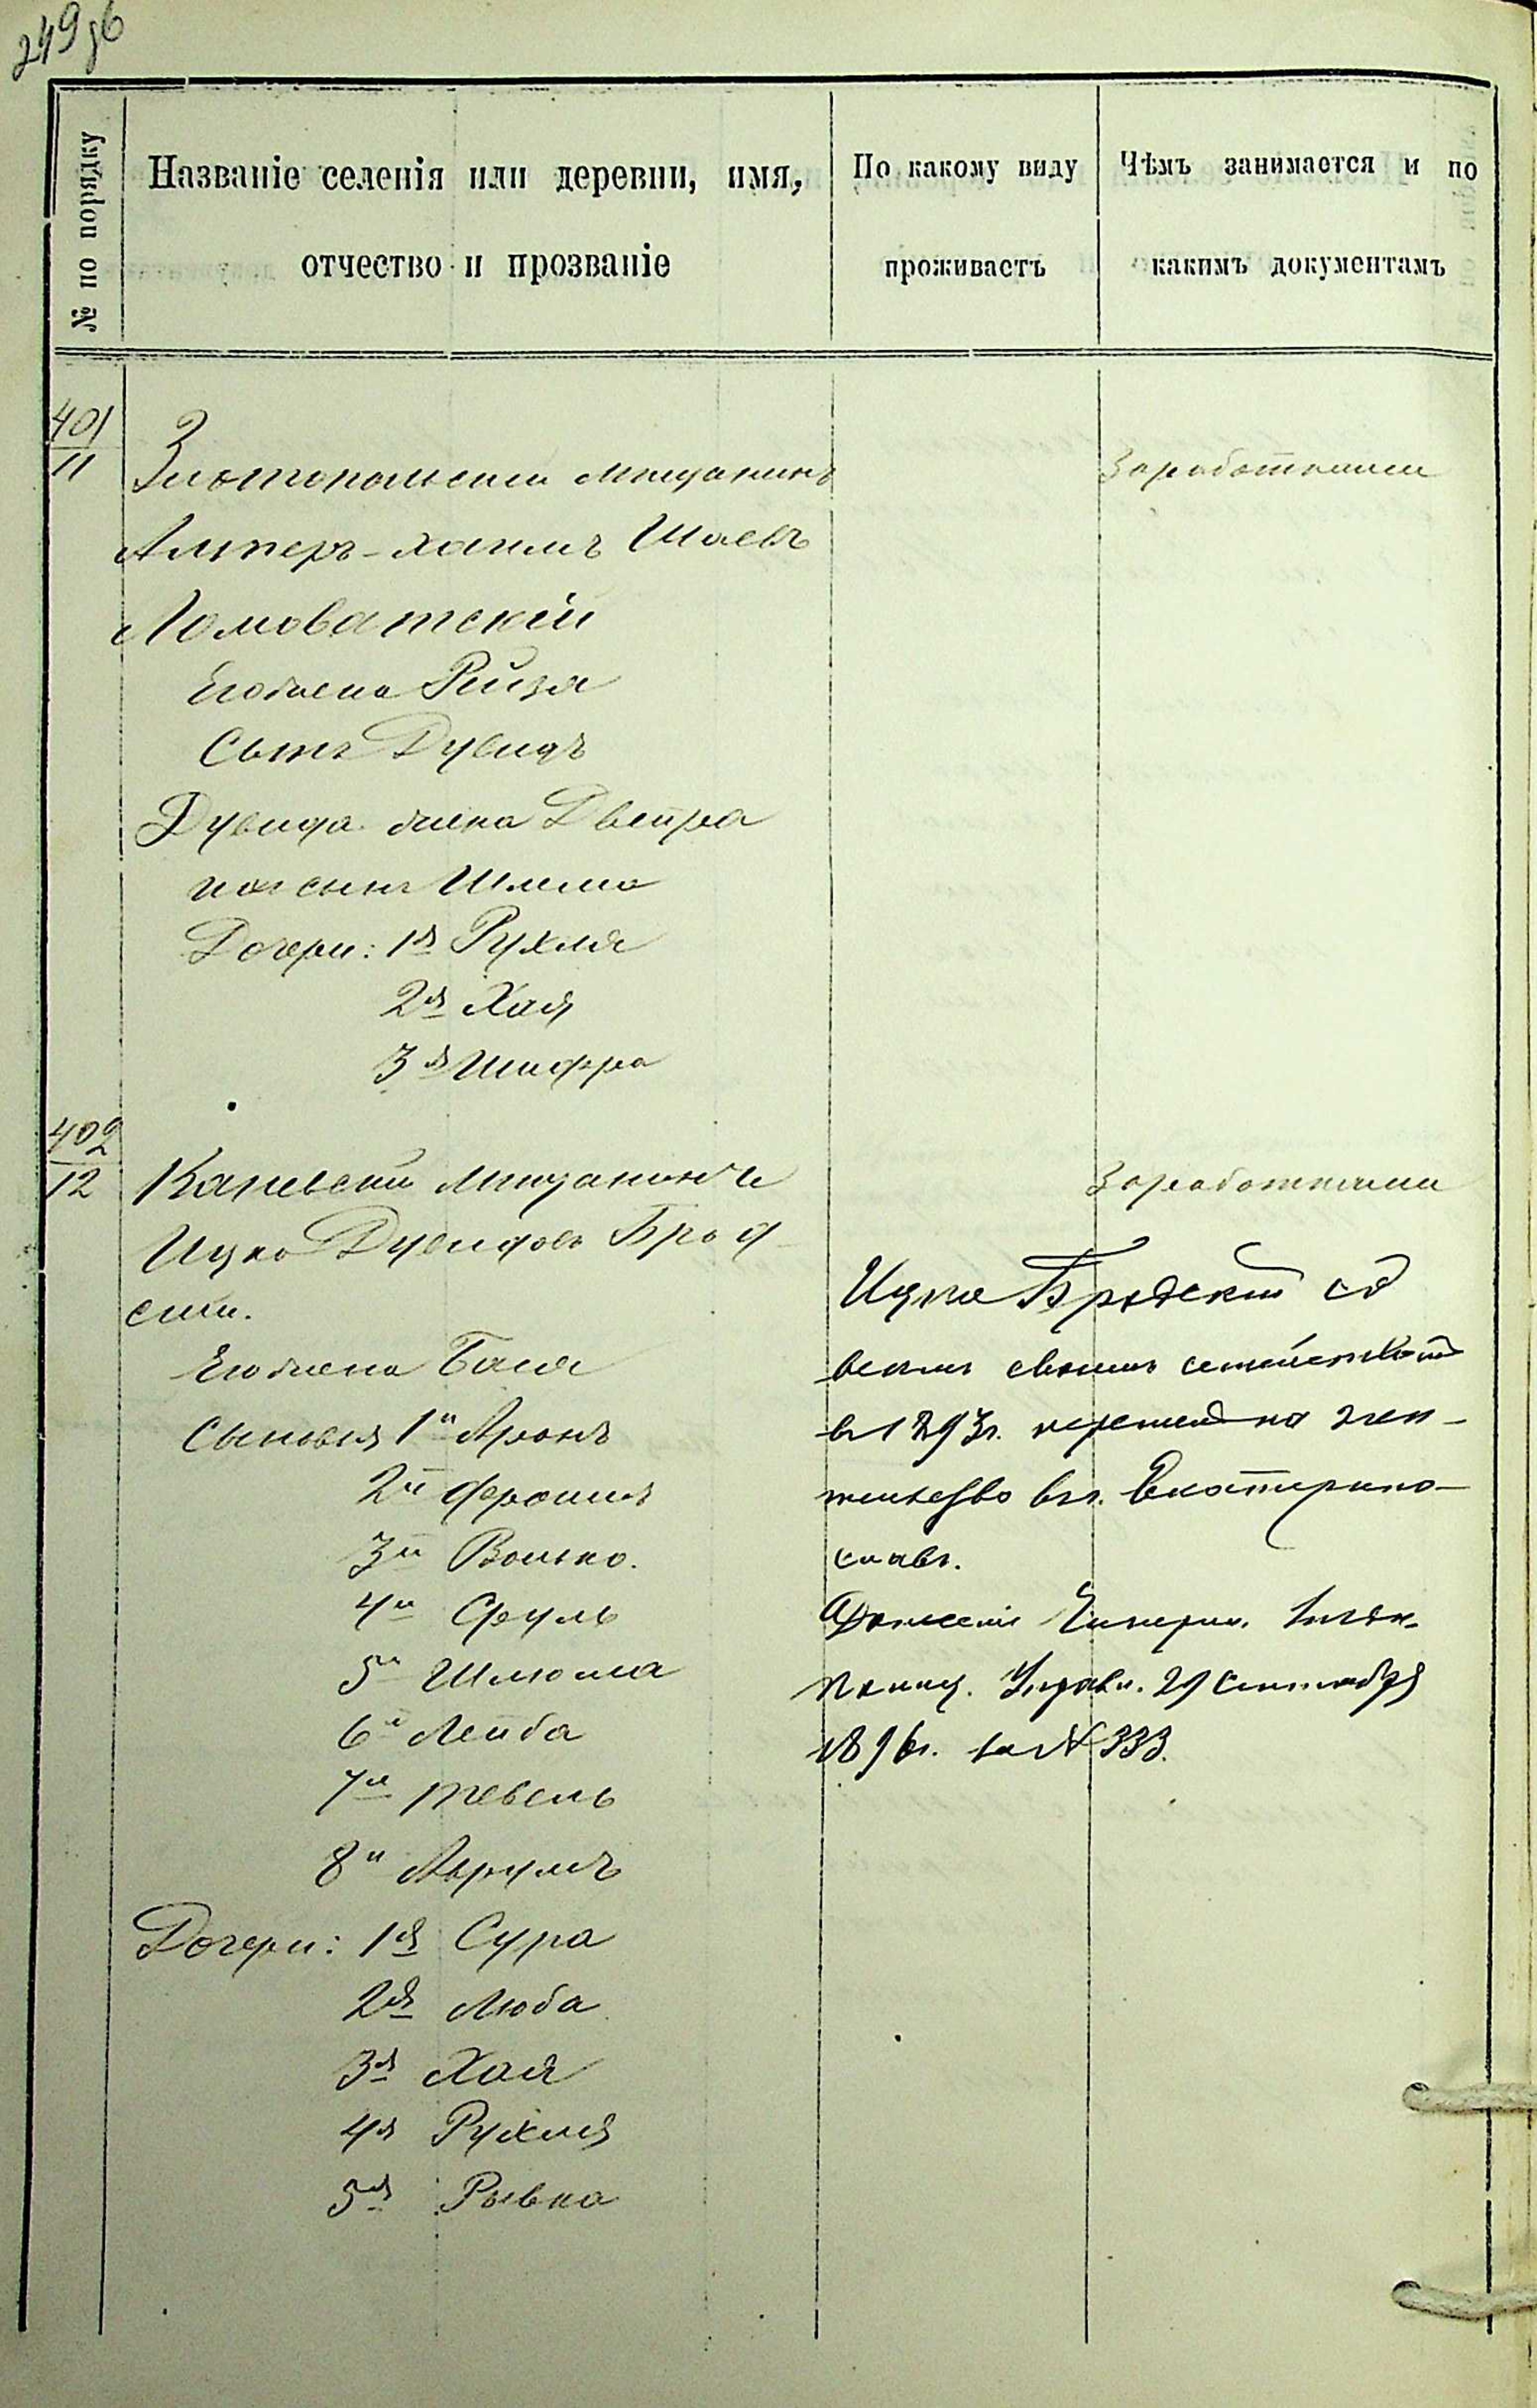 249 об
№ по порядку
Названіе селенія или деревни, имя,
отчество и прозваніе
По какому виду
проживаетъ
Чѣмъ занимается и по
какимъ документамъ
401
11
Златопольскій мѣщанинъ
Заработками
Алтеръ-Хаимъ Шаевъ
Ломоватскій
Его жена Рейзя
Сынъ Дувидъ
Дувида жена Двейра
ихъ сынъ Шлема
Дочери: 1я Рухля
2я Хая
3я Шифра
402
12
Каневскій мѣщанинъ
Заработками
Ицко Дувидовъ Брод-
скій.
Его жена Бася
Сыновья 1й Аронъ
2й Фроимъ
3й Волько.
4й Сруль
5й Шлюма
6й Лейба
7й Тевель
8й Аврумъ
Дочери: 1я Сура
2я Люба
3я Хая
4я Рухля
5я Рывка
Ицко Бродскій со
всѣмъ своимъ семействомъ
въ 1893г. перешелъ на жи-
тельство въ г. Екатерино-
славъ.
Донесеніе Чигирин. Уѣздн.
Полиц. Управл. 29 Сентября
1896г. за № 333.